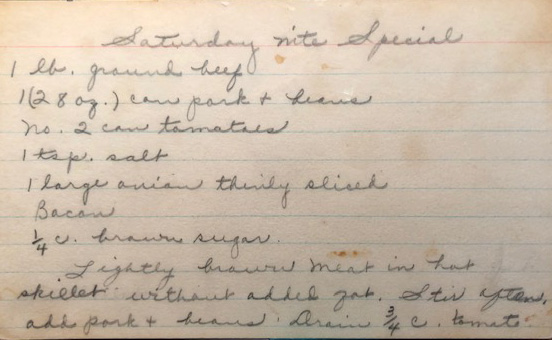 Saturday nite Special
1 lb. ground beef
1 (28 oz.) can pork + beans
No. 2 can tomatoes
1 tsp. salt
1 large onion thinly sliced
Bacon
1/4 c. brown sugar.
Lightly brown meat in hot
skillet without added fat. Stir often,
add pork + beans. Drain 3/4 c. tomato